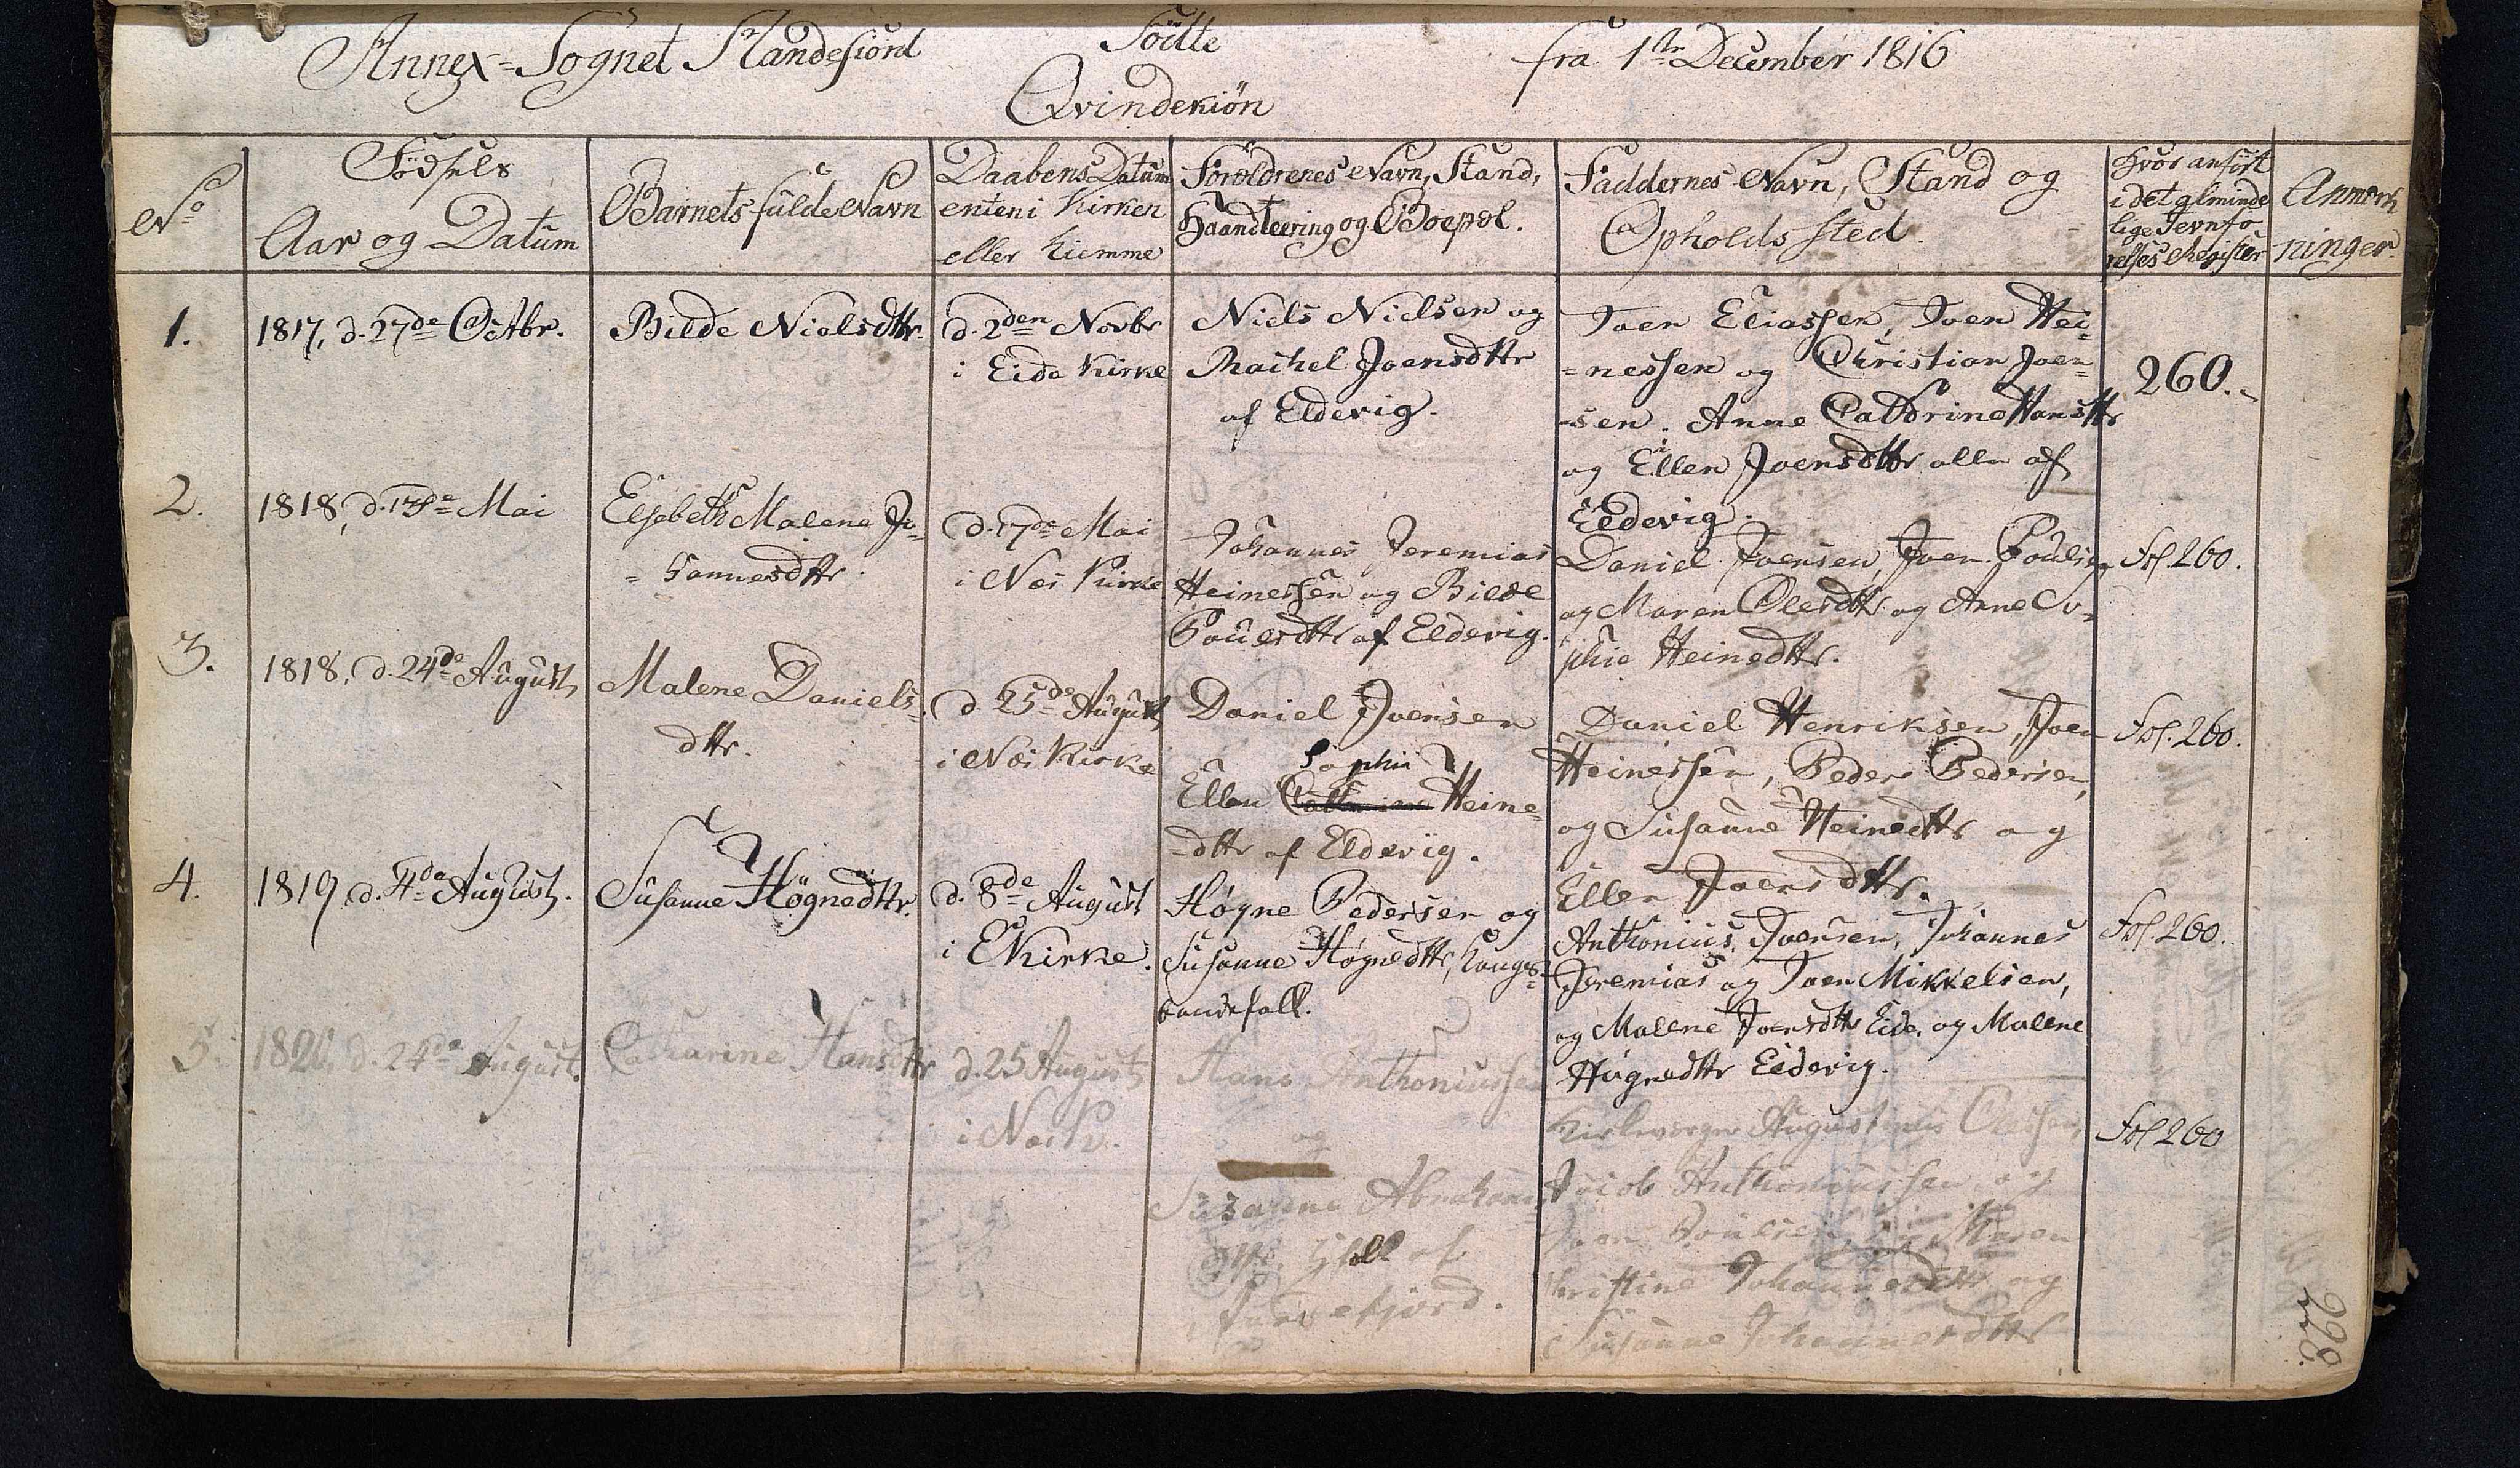 Annex-Sognet
Födte
fra 1ste December 1816
Qvindekiön
No
Födsels
Aar og Datum
Barnets fulde Navn
Daabens Datum
enten i Kirken
eller hiemme
Foroldrenes Navn, Stand,
Haandteering og Boepæl.
Faddernes Navn, Stand og
Opholds sted.
Hvor anfört
i det alminde
lige Jevnfö
relses Register
Anmerk
ninger
1.
1817, d. 27de Octbr.
Bilde Nielsdttr.
d. 2den Novbr
i Eide Kirke
Niels Nielsen og
Rachel Joensdttr
af Eldevig.
Joen Eliassen, Joen Hei=
=nessen og Christian Joen=
=sen. Anne Cathrine Hansdttr
og Ellen Joensdttr alle af
Eldevig.
260.
2.
1818, d. Mai
Elsebeth Malene Jo=
=hannesdttr.
d. 17de Mai
i Nes Kirke
Johannes Jeremias
Heinessen og Bilde
Poulsdttr af Eldevig.
Daniel Joensen, Joen Poulsen
og Maren Olesdttr og Anne So=
phie Heinedttr.
Fol. 260.
3.
1818, d. 24de August
Malene Daniels=
dttr.
d. 25de August
i Nes Kirke
Daniel Joensen
Sophie
Ellen Heine=
=dttr af Eldevig.
Daniel Henriksen, Joen
Heinessen, Peder Pedersen,
og Susanne Heinedttr og
Ellen Joensdttr.
Fol. 260.
4.
1819, d. 4de August.
Susanne Högnedttr.
d. 8de August
i E Kirke.
Høgne Pedersen og
Susanne Høgnedttr, Konges=
bondefolk.
Anthonius Joensen, Johannes
Jeremias og Joen Mikkelsen,
og Malene Joensdttr Eide, og Malene
Høgnedttr Eldevig.
Fol. 260.
5.
d. 24de August.
Catharine Hansdttr
d. 25 August
i Nes K.
Hans Anthoniussen
og
Susanne Abrahams
af
Kirkeverger Augustinus Olessen,
Jacob Anthoniussen og
Joen Poulsen Maren
Christine Johannesdttr og
Susanne Johannesdttr
Fol 260
298.